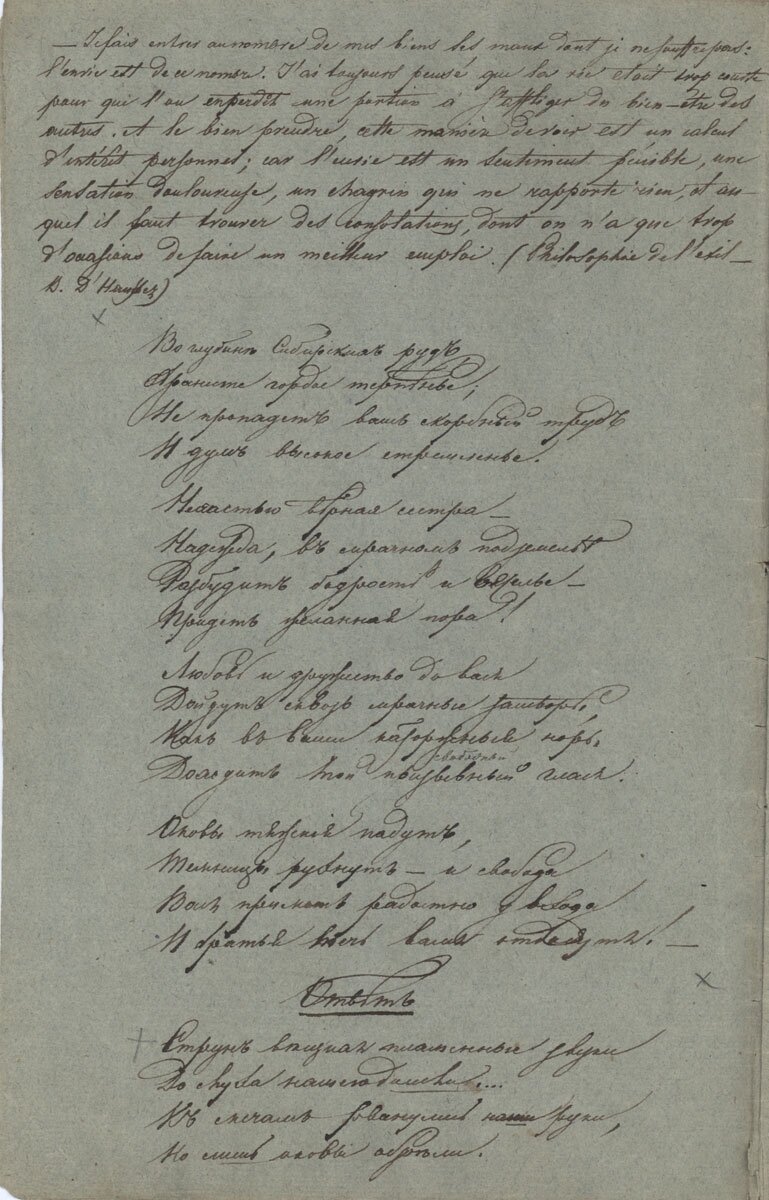 — Je fais entrer au nombre de mes biens les maux dont je ne souffre pas:
l'envie est de ce nombre. J'ai toujours pensé que la vie etait trop courte
pour qui l'on en perdit une portion à s'affliger du bien-être des
autres. et le bien prendre, cette manière de voir est un calcul
d'intérêt personnel; car l'envie est un sentiment pénible, une
sensation douloureuse, un chagrin qui ne rapporte rien, et au-
quel il faut trouver des consolations, dont on n'a que trop
d'occasions de faire un meilleur emploi. (Philosophie de l'exil —
B. D'Haussez)
Во глубинѣ Сибирскихъ рудъ
Храните гордое терпѣнье;
Не пропадетъ вашъ скорбный трудъ
И думъ высокое стремленье.
Несчастью вѣрная сестра —
Надежда, въ мрачномъ подземельѣ
Разбудитъ бодрость и веселье —
Придетъ желанная пора!
Любовь и дружество до васъ
Дойдутъ сквозь мрачные затворы,
Какъ въ ваши каторжныя норы
свободный
Доходитъ мой призывный гласъ.
Оковы тяжкія падутъ,
Темницы рухнутъ — и свобода
Васъ приметъ радостно у входа
И братья мечь вамъ отдадутъ! —
Отвѣтъ
Струнъ вѣщихъ пламенные звуки
До слуха нашего дошли....
Къ мечамъ рванулись наши руки,
Но лишь оковы обрѣли.